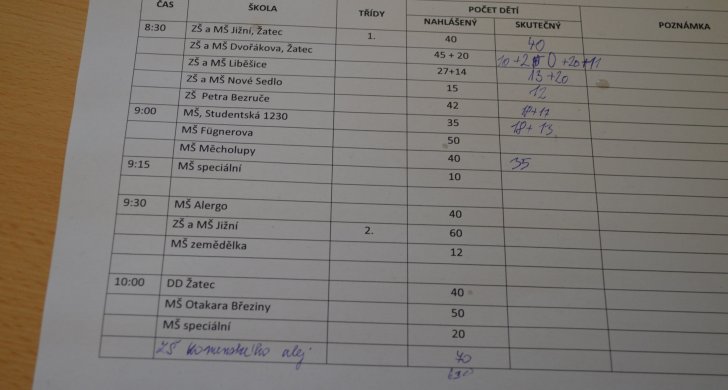 ČAS ŠKOLA TŘÍDY POČET DĚTÍ POZNÁMKA
NAHLÁŠENÝ SKUTEČNÝ
8:30 ZŠ a MŠ Jižní, Žatec 1. 40 40
ZŠ a MŠ Dvořákova, Žatec 45 + 20
ZŠ a MŠ Liběšice 27+14 13 +20
ZŠ a MŠ Nové Sedlo 15 12
ZŠ Petra Bezruče 42
9:00 MŠ, Studentská 1230 35 18+13
MŠ Fügnerova 50
MŠ Měcholupy 40 35
9:15 MŠ speciální 10
9:30 MŠ Alergo 40
ZŠ a MŠ Jižní 2. 60
MŠ zemědělka 12
10:00 DD Žatec 40
MŠ Otakara Březiny 50
MŠ speciální 20
ZŠ Komenského alej 70